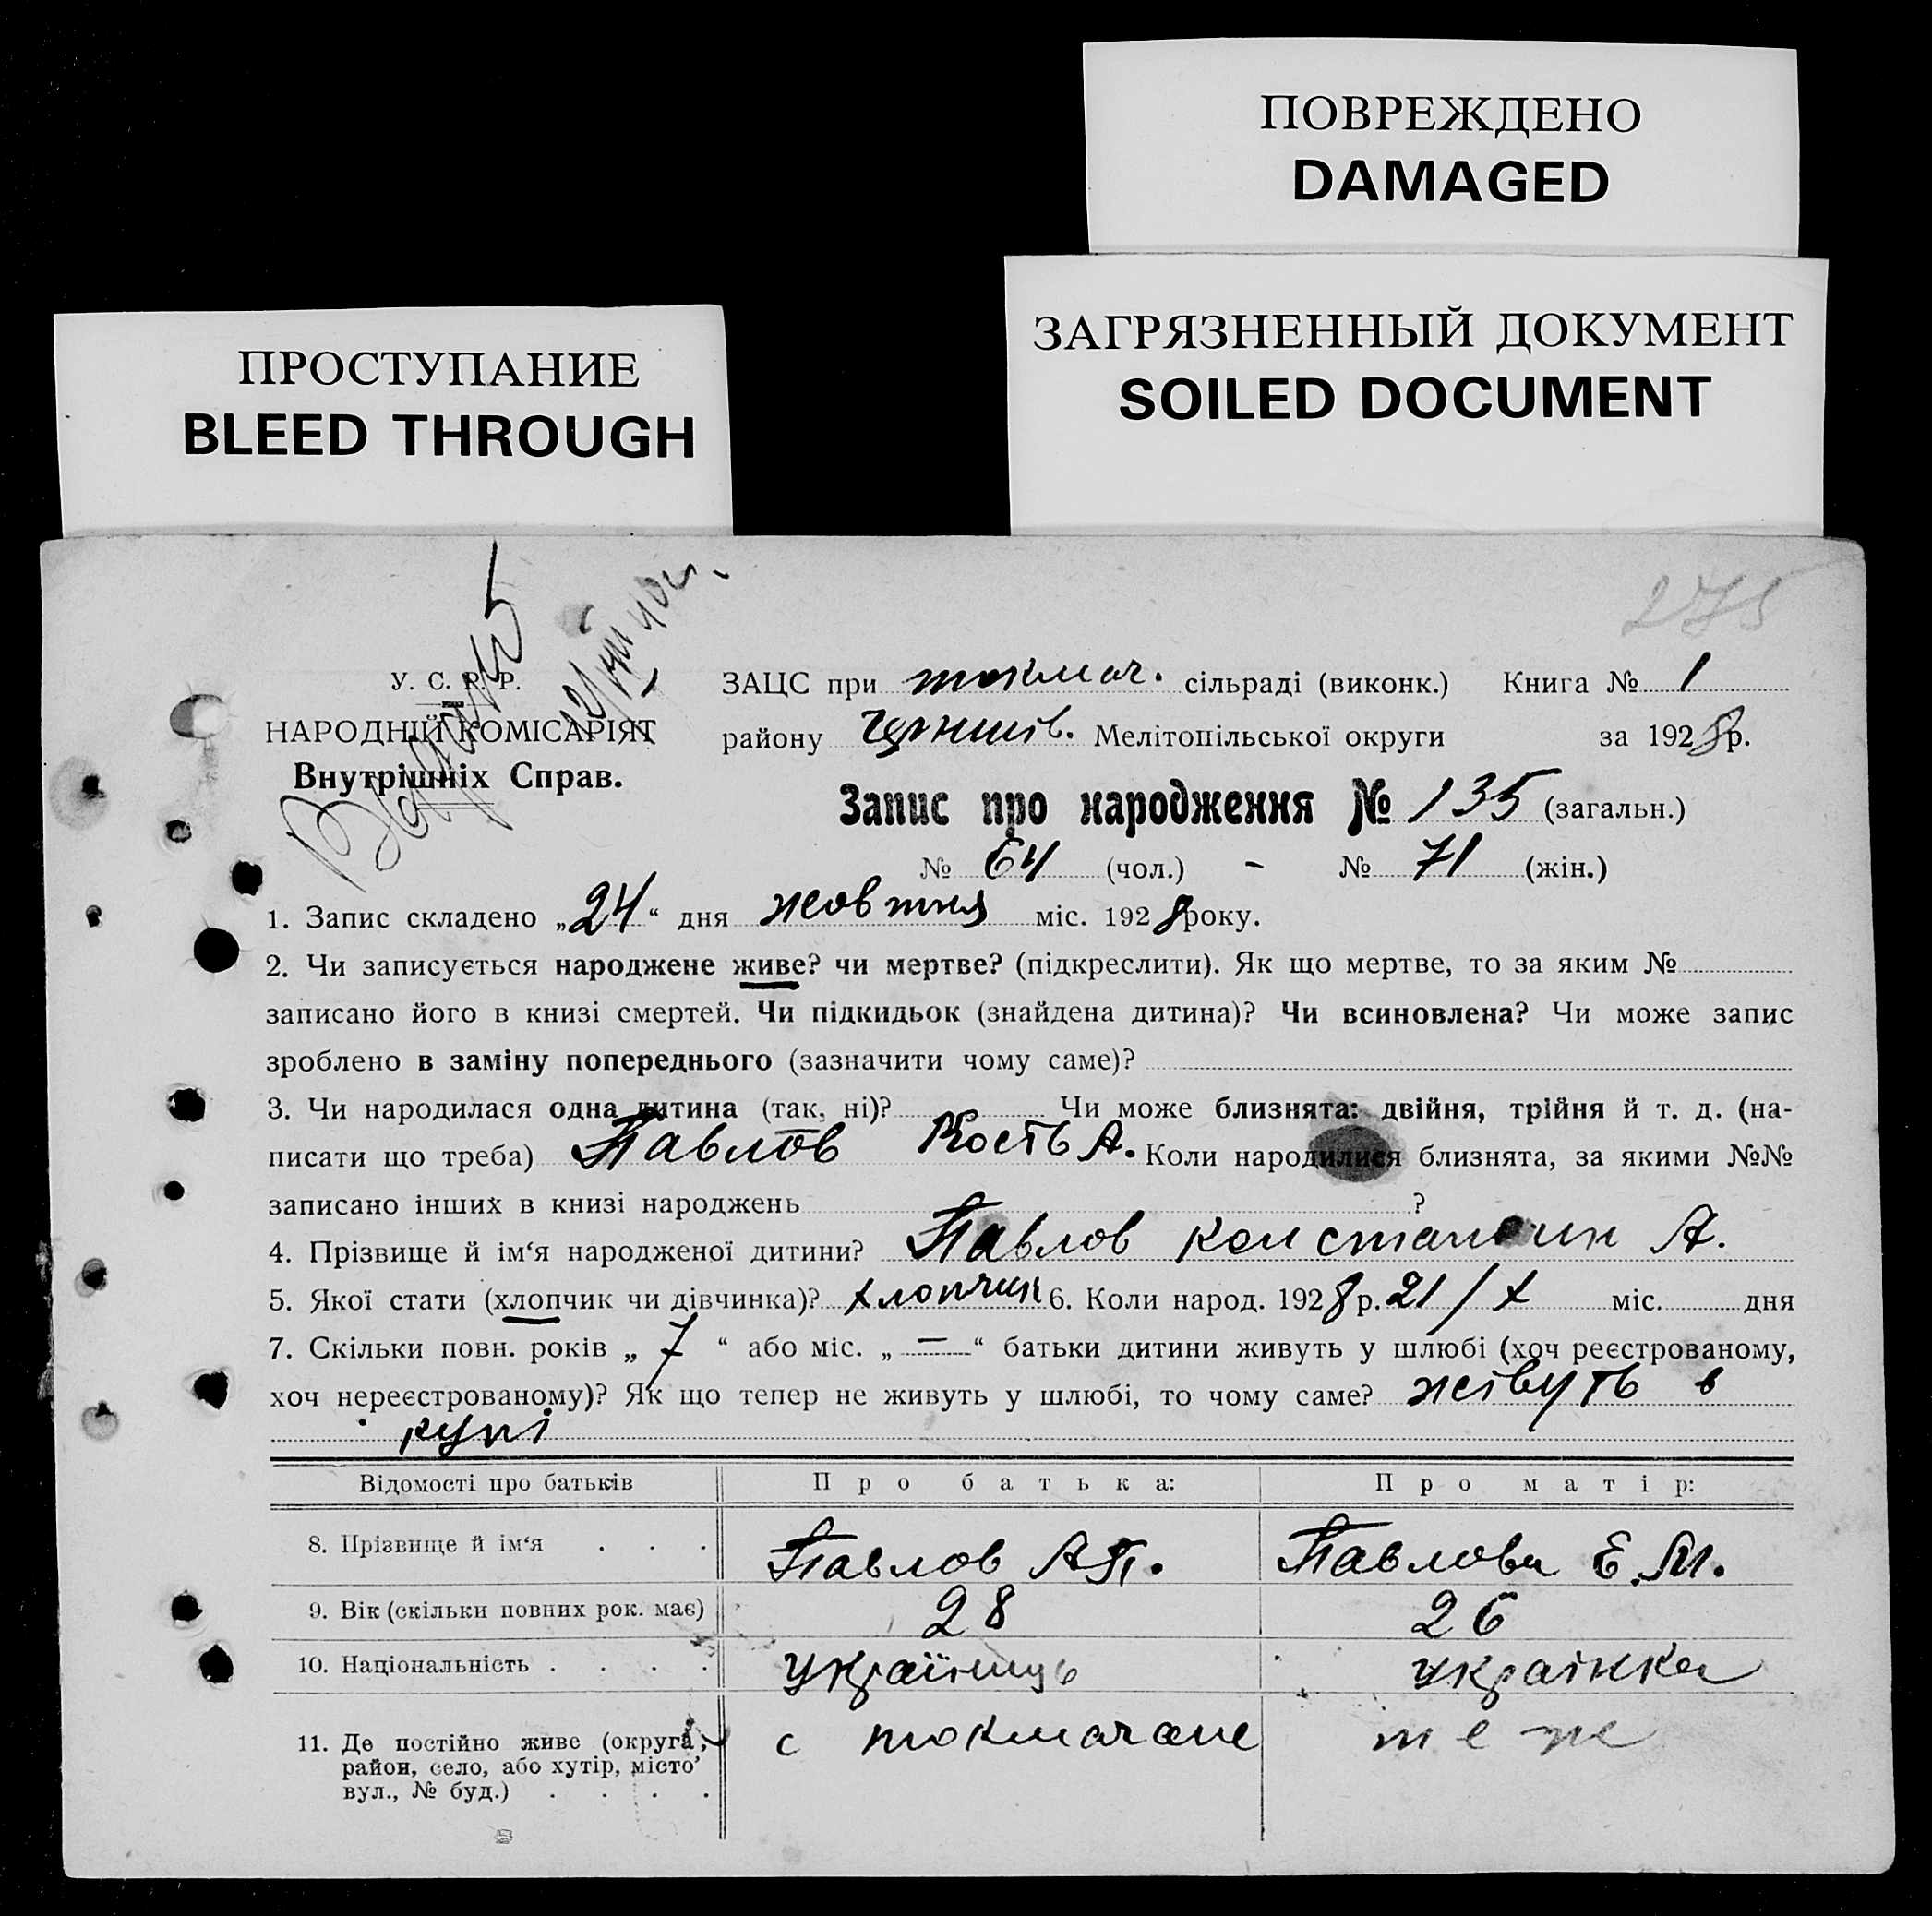 ПОВРЕЖДЕНО
DAMAGED
ЗАГРЯЗНЕННЫЙ ДОКУМЕНТ
SOILED DOCUMENT
ПРОСТУПАНИЕ
BLEED THROUGH
275
У. С. Р. Р.
НАРОДНІЙ КОМІСАРІЯТ
Внутрішніх Справ.
ЗАЦС при токмач. сільраді (виконк.) Книга № 1
району Черниів. Мелітопільської округи за 1928 р.
Запис про народження № 135 (загальн.)
№ 64 (чол.) - № 71 (жін.)
1. Запис складено „24“ дня жовтня міс. 1928 року.
2. Чи записується народжене живе? чи мертве? (підкреслити). Як що мертве, то за яким №
записано його в книзі смертей. Чи підкидьок (знайдена дитина)? Чи всиновлена? Чи може запис
зроблено в заміну попереднього (зазначити чому саме)?
3. Чи народилася одна дитина (так, ні)? Чи може близнята: двійня, трійня й т. д. (на-
писати що треба) Павлов Кость А. Коли народилися близнята, за якими №№
записано інших в книзі народжень ?
4. Прізвище й ім‘я народженої дитини? Павлов Константин А.
5. Якої стати (хлопчик чи дівчинка)? хлопчик 6. Коли народ. 1928 р. 21/X міс. дня
7. Скільки повн. років „ 7 “ або міс. „ — “ батьки дитини живуть у шлюбі (хоч реєстрованому,
хоч нереєстрованому)? Як що тепер не живуть у шлюбі, то чому саме? живуть в
купі
Відомості про батьків Про батька: Про матір:
8. Прізвище й ім‘я . . . Павлов А.П. Павлова Е.М.
9. Вік (скільки повних рок. має) 28 26
10. Національність . . . . українць українка
11. Де постійно живе (округа, с токмачане теже
район, село, або хутір, місто
вул., № буд.) . . . .